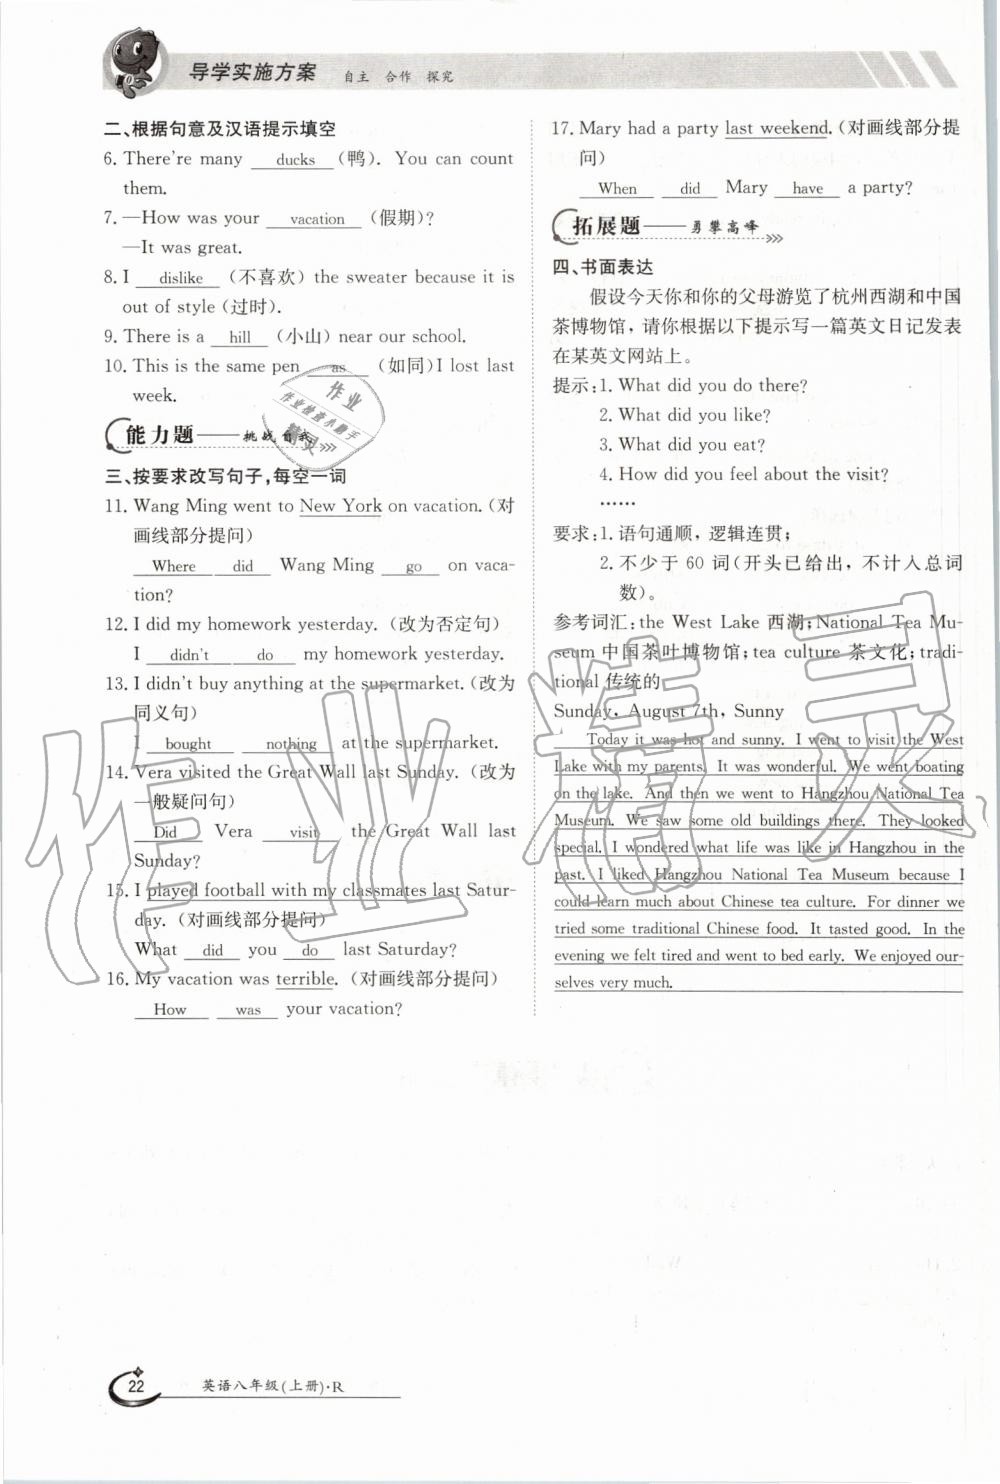 导学实施方案 自主 合作 探究
二、根据句意及汉语提示填空
6. There're many ducks (鸭). You can count
them.
7. —How was your vacation (假期)?
—It was great.
8. I dislike (不喜欢) the sweater because it is
out of style (过时).
9. There is a hill (小山) near our school.
10. This is the same pen as (如同) I lost last
week.
能力题——挑战自我
三、按要求改写句子,每空一词
11. Wang Ming went to New York on vacation. (对
画线部分提问)
Where did Wang Ming go on vaca-
tion?
12. I did my homework yesterday. (改为否定句)
I didn't do my homework yesterday.
13. I didn't buy anything at the supermarket. (改为
同义句)
I bought nothing at the supermarket.
14. Vera visited the Great Wall last Sunday. (改为
一般疑问句)
Did Vera visit the Great Wall last
Sunday?
15. I played football with my classmates last Satur-
day. (对画线部分提问)
What did you do last Saturday?
16. My vacation was terrible. (对画线部分提问)
How was your vacation?
17. Mary had a party last weekend. (对画线部分提
问)
When did Mary have a party?
拓展题——勇攀高峰
四、书面表达
假设今天你和你的父母游览了杭州西湖和中国
茶博物馆,请你根据以下提示写一篇英文日记发表
在某英文网站上。
提示:1. What did you do there?
2. What did you like?
3. What did you eat?
4. How did you feel about the visit?
……
要求:1. 语句通顺,逻辑连贯;
2. 不少于 60 词(开头已给出,不计入总词
数)。
参考词汇:the West Lake 西湖;National Tea Mu-
seum 中国茶叶博物馆;tea culture 茶文化;tradi-
tional 传统的
Sunday, August 7th, Sunny
Today it was hot and sunny. I went to visit the West
Lake with my parents. It was wonderful. We went boating
on the lake. And then we went to Hangzhou National Tea
Museum. We saw some old buildings there. They looked
special. I wondered what life was like in Hangzhou in the
past. I liked Hangzhou National Tea Museum because I
could learn much about Chinese tea culture. For dinner we
tried some traditional Chinese food. It tasted good. In the
evening we felt tired and went to bed early. We enjoyed our-
selves very much.
作业精灵
作业
作业检查小助手
精灵
22 英语八年级(上册)·R